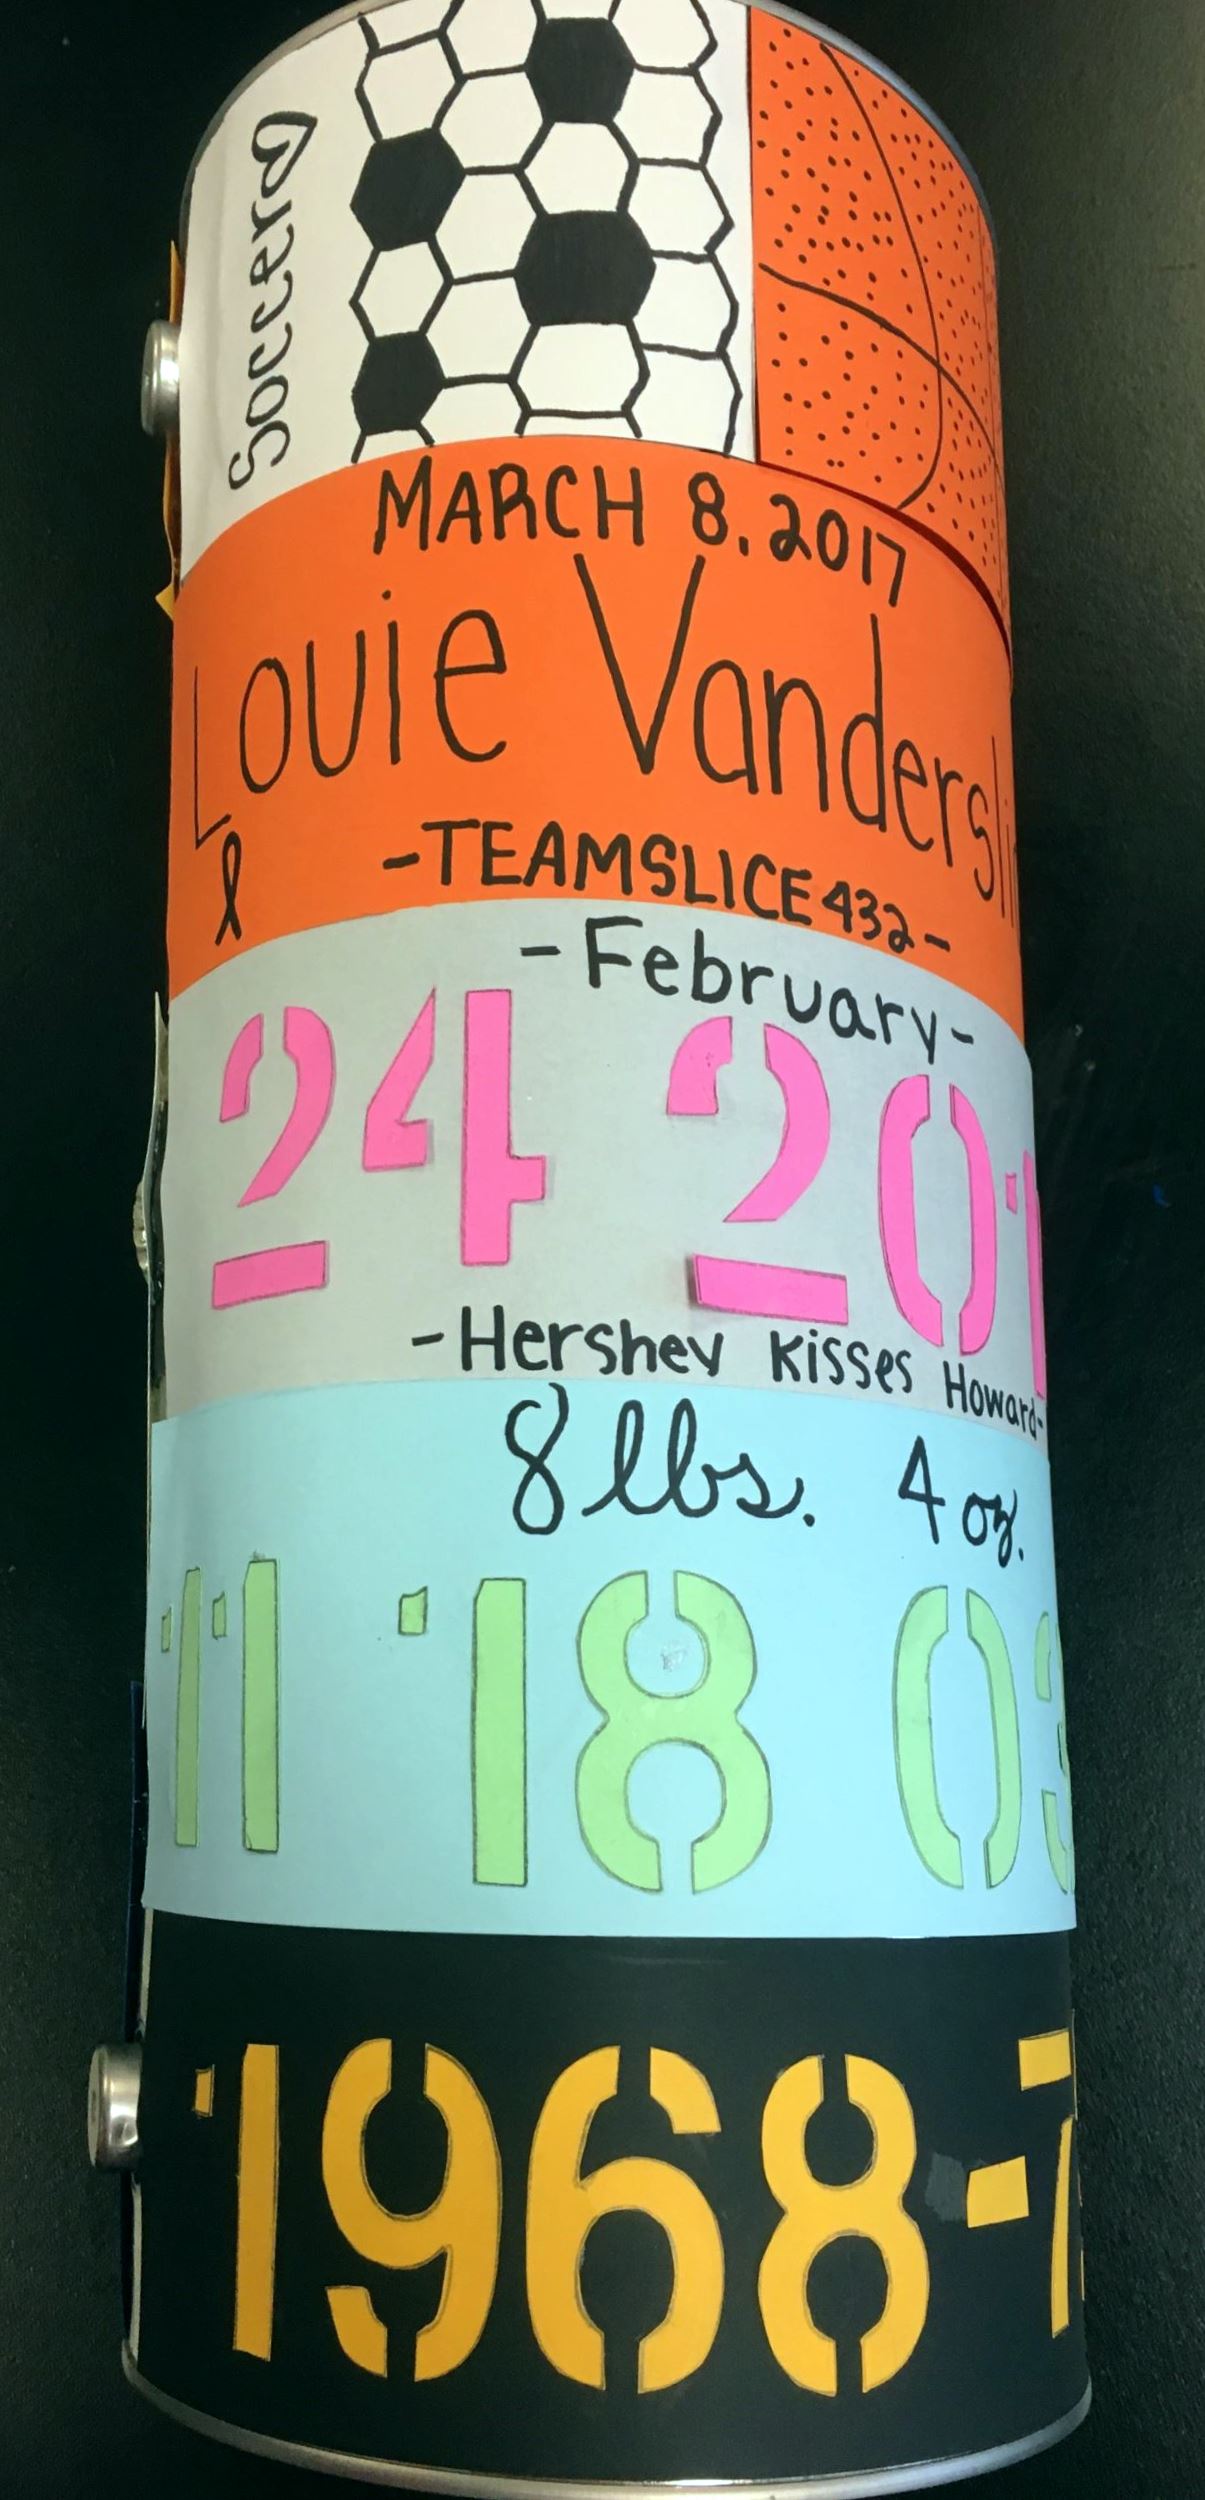 Soccer
MARCH 8.2017
Louie
-TEAMSLICE432-
-February-
24
-Hershey Kisses Howard-
8 lbs. 4 oz.
11 18
1968-